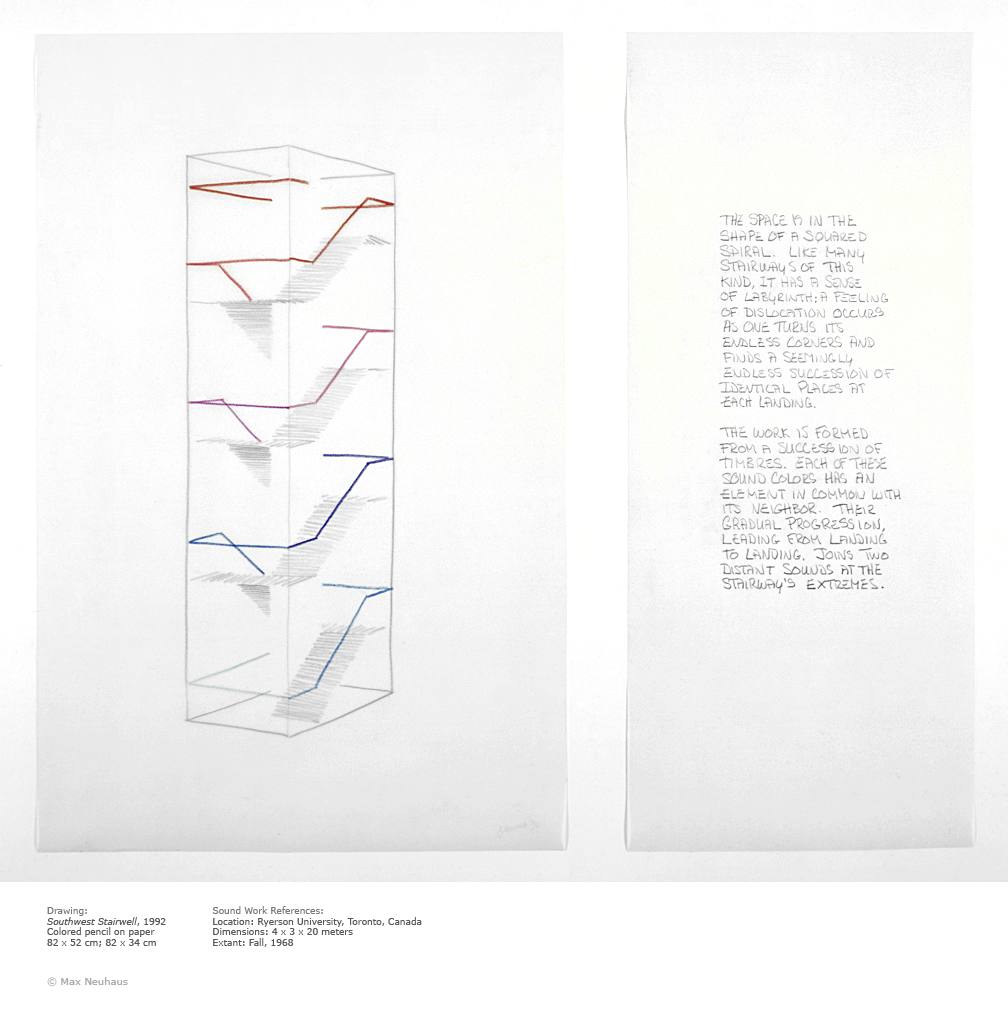 THE SPACE IS IN THE
SHAPE OF A SQUARED
SPIRAL. LIKE MANY
STAIRWAYS OF THIS
KIND, IT HAS A SENSE
OF LABYRINTH; A FEELING
OF DISLOCATION OCCURS
AS ONE TURNS ITS
ENDLESS CORNERS AND
FINDS A SEEMINGLY
ENDLESS SUCCESSION OF
IDENTICAL PLACES AT
EACH LANDING.
THE WORK IS FORMED
FROM A SUCCESSION OF
TIMBRES. EACH OF THESE
SOUND COLORS HAS AN
ELEMENT IN COMMON WITH
ITS NEIGHBOR. THEIR
GRADUAL PROGRESSION,
LEADING FROM LANDING
TO LANDING, JOINS TWO
DISTANT SOUNDS AT THE
STAIRWAY'S EXTREMES.
Drawing:
Southwest Stairwell, 1992
Colored pencil on paper
82 x 52 cm; 82 x 34 cm
Sound Work References:
Location: Ryerson University, Toronto, Canada
Dimensions: 4 x 3 x 20 meters
Extant: Fall, 1968
© Max Neuhaus